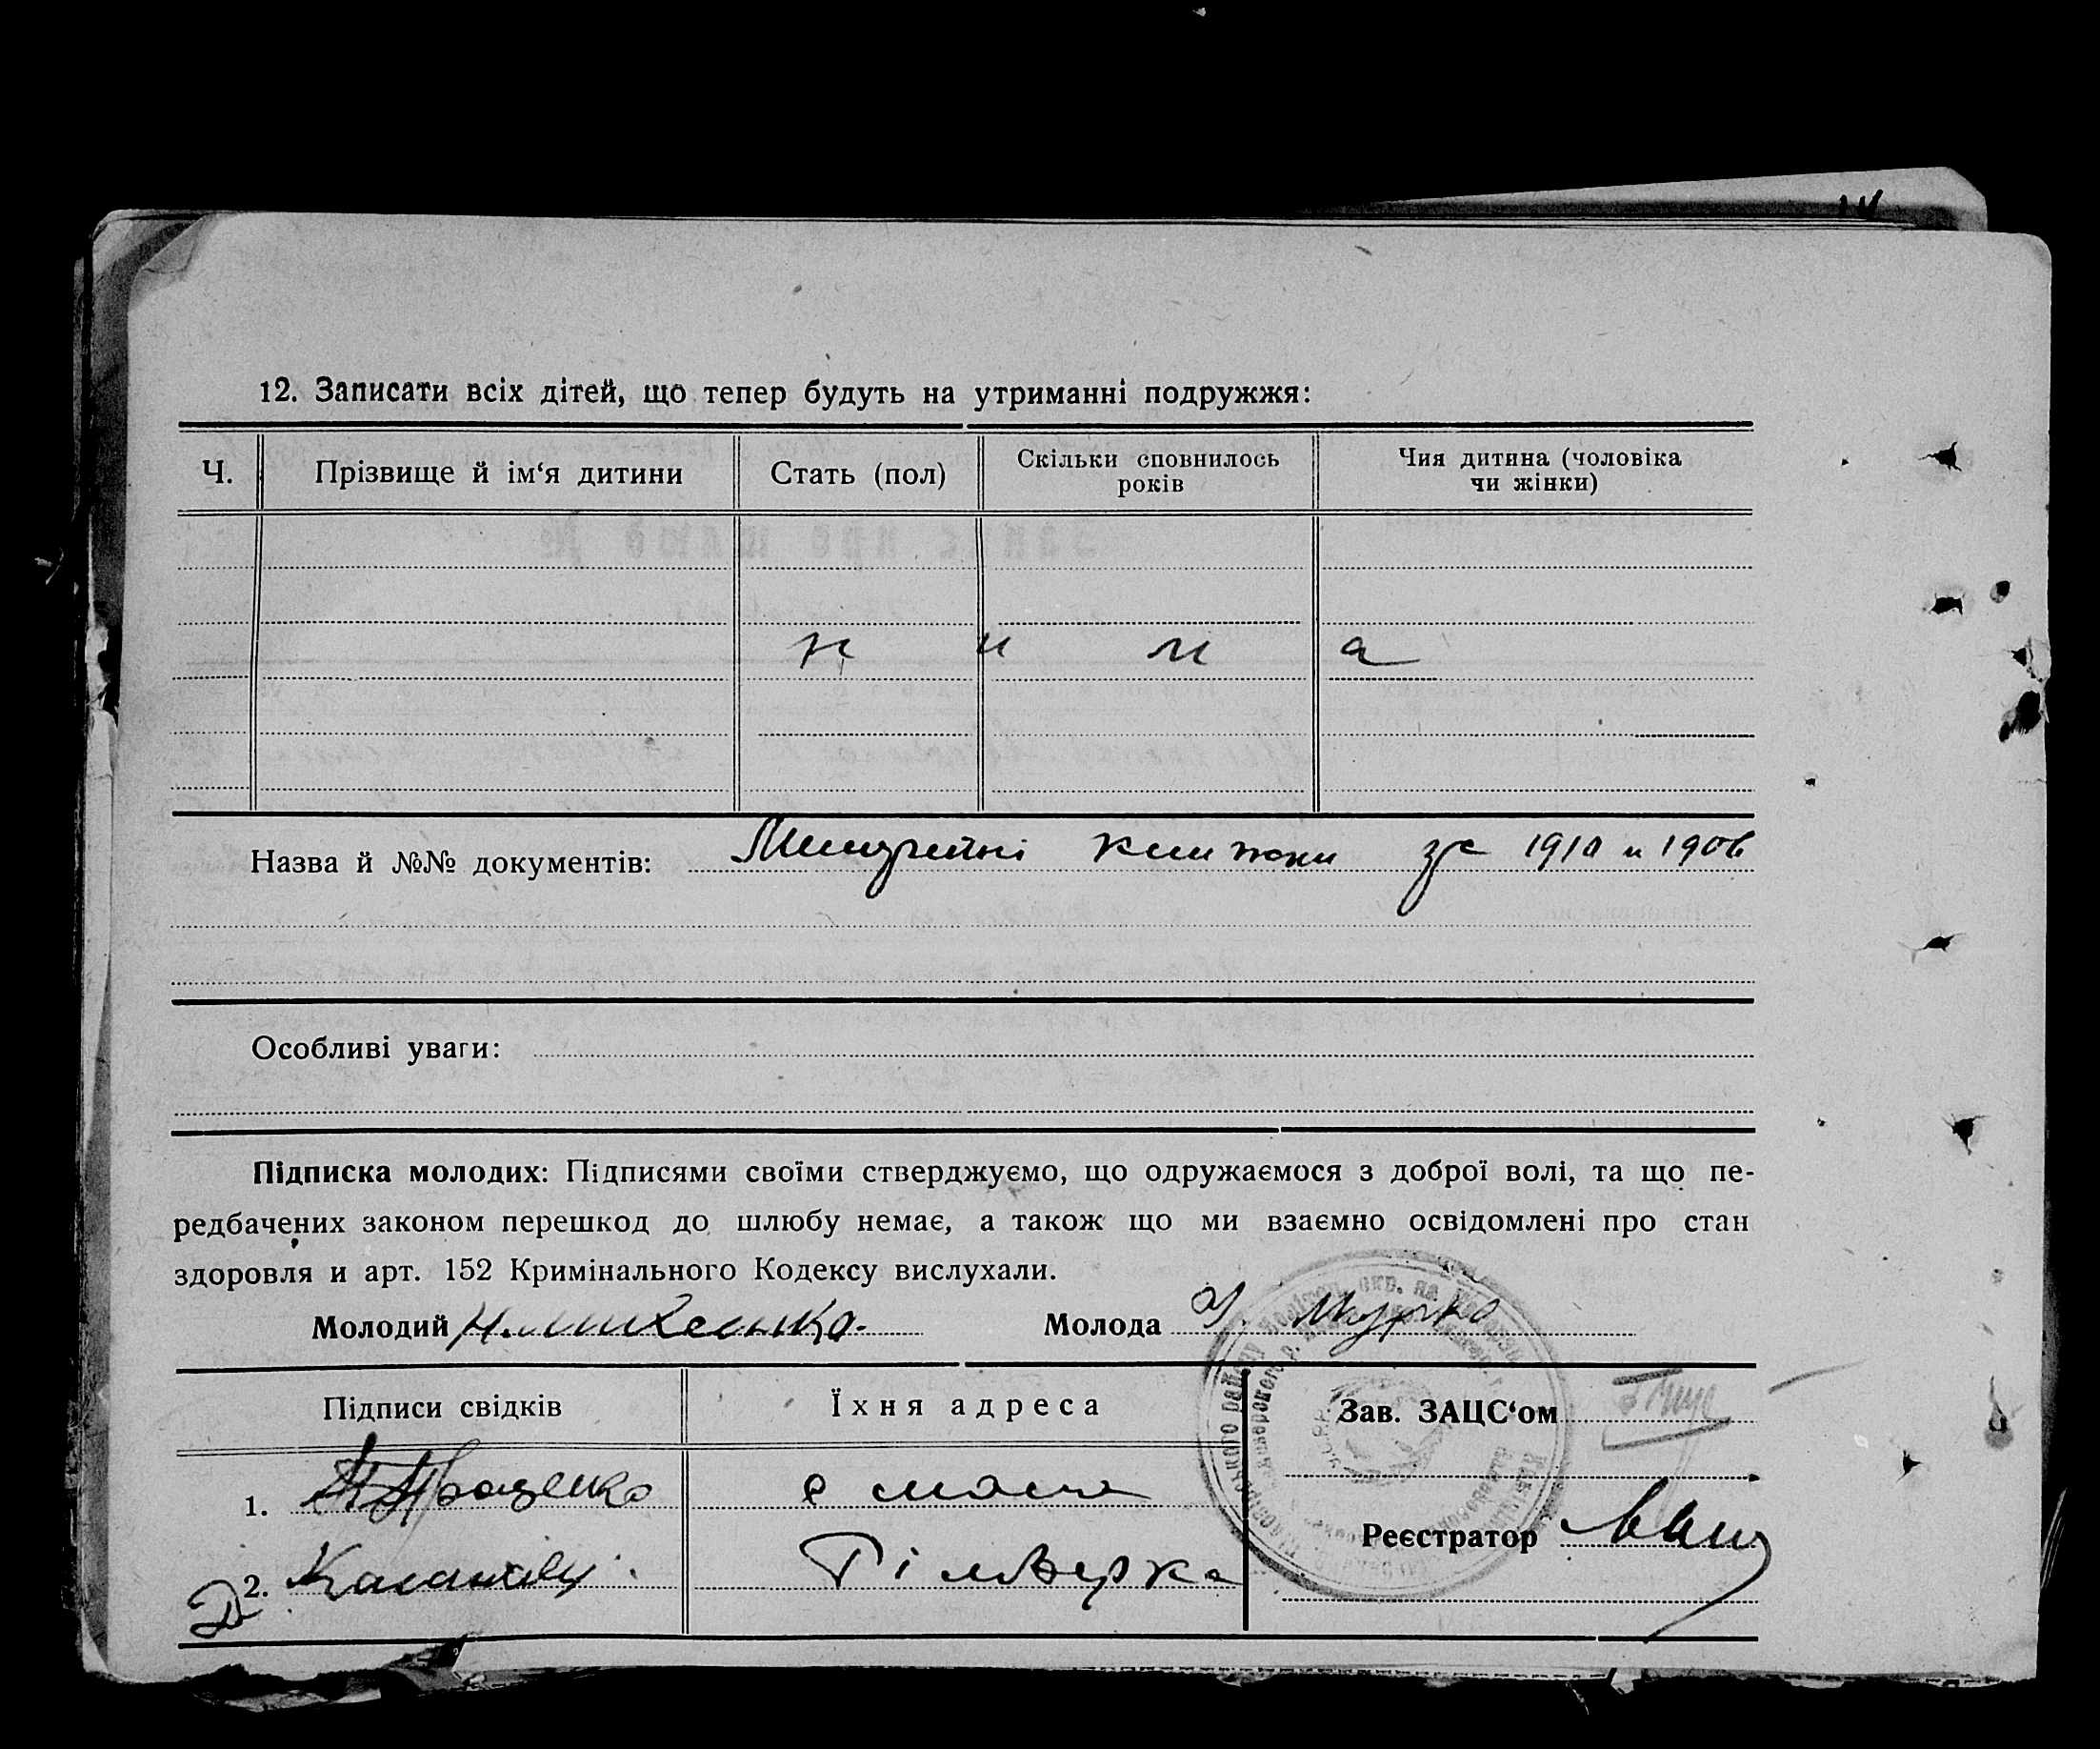 12. Записати всіх дітей, що тепер будуть на утриманні подружжя:
Ч. Прізвище й ім‘я дитини Стать (пол) Скільки сповнилось років Чия дитина (чоловіка чи жінки)
н и м а
Назва й №№ документів: Метричні книжки за 1910 и 1906
Особливі уваги:
Підписка молодих: Підписями своїми стверджуємо, що одружаємося з доброї волі, та що пе-
редбачених законом перешкод до шлюбу немає, а також що ми взаємно освідомлені про стан
здоровля и арт. 152 Кримінального Кодексу вислухали.
Молодий Молода
Підписи свідків Їхня адреса Зав. ЗАЦС‘ом
1. Проценко
Реєстратор
2.